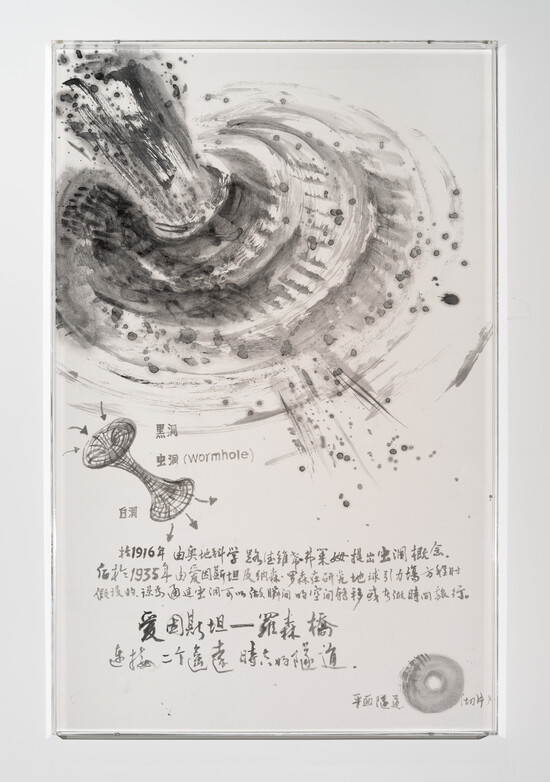 黑洞
虫洞 (wormhole)
白洞
於1916年 由奥地科学 路德維希弗莱姆 提出虫洞概念.
后於1935年由爱因斯坦及納森·罗森在研究地球引力場方程时
假设的. 認为通过虫洞可以做瞬间的空间轉移或者做時间旅行.
爱因斯坦一羅森橋
连接二个遥遠時空的隧道.
平面隧道 (切片)